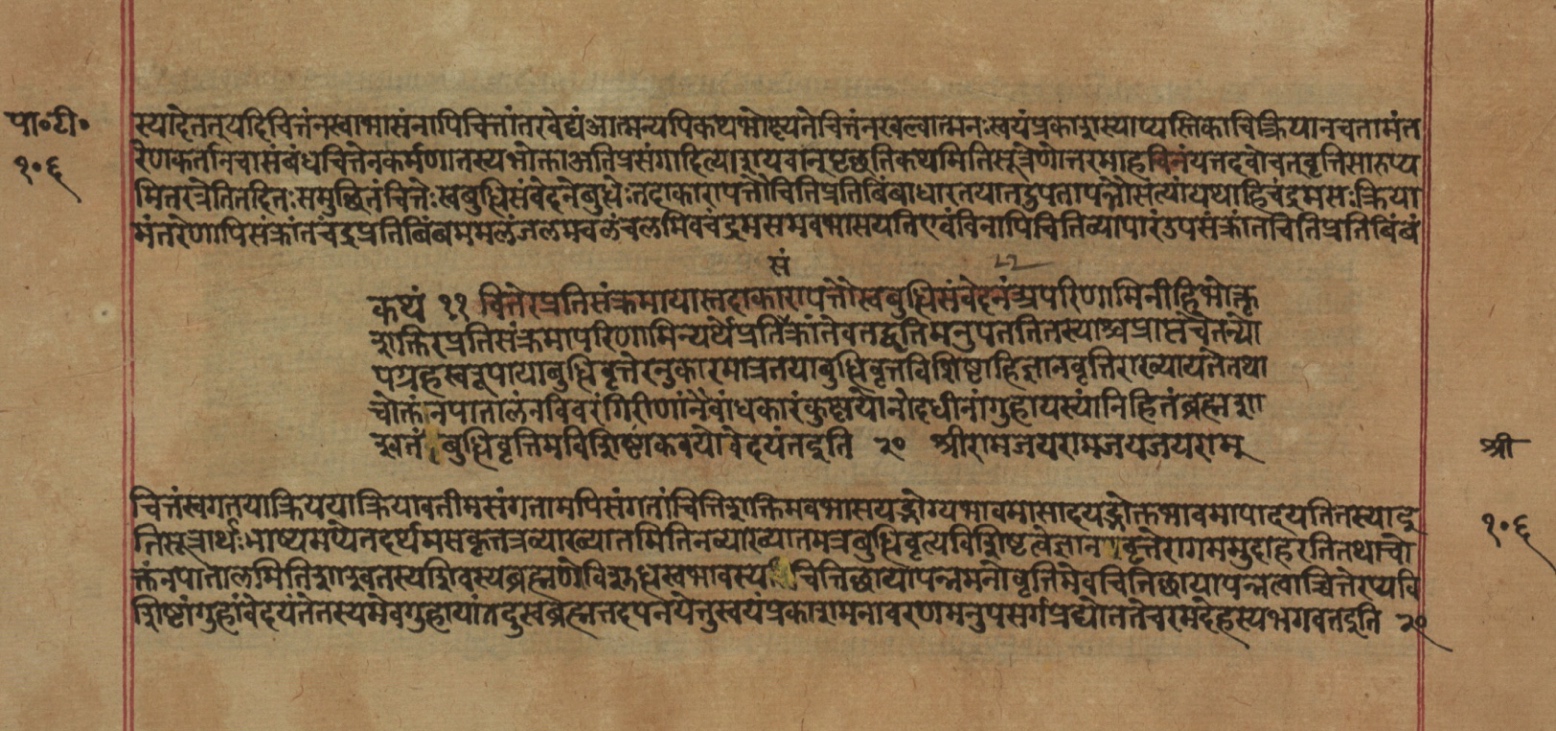 पा॰टी॰
१०६
स्यादेतत् यदिचित्तंनस्वाभासंनापिचित्तांतरवेद्यंआत्मन्यपिकथंभोक्ष्यतेचित्तंनखल्वात्मनःस्वयंप्रकाशस्याप्यस्तिकाचिक्रियानचतामंत
रेणकर्तानचासंबंधचित्तेनकर्मणातस्यभोक्ताअतिप्रसंगादित्याशयवान्पृच्छतिकथमितिसूत्रेणोत्तरमाहचितेयत्तदवोचत्वृत्तिसारुप्य
मितरत्रेतितदितःसमुच्छितंचित्तेःस्वबुद्धिसंवेदनेबुद्धेःतदाकारापत्तौचितिप्रतिबिंबाधारतयातद्रुपतापत्तौसत्यांयथाहिचंद्रमसःक्रिया
मंतरेणापिसंक्रांतचंद्रप्रतिबिंबममलंजलमचलंचलमिवचंद्रमसमवभासयतिएवंविनापिचितिव्यापारंउपसंक्रांतचितिप्रतिबिंबं
सं २२
कथं ११ चितेरप्रतिसंक्रमायास्तदाकारापत्तौस्वबुद्धिसंवेदनंअपरिणामिनीहिभोक्तृ
शक्तिरप्रतिसंक्रमापरिणामिन्यर्थेप्रतिक्रांतेवतद्वृत्तिमनुपततितस्याश्चप्राप्तचैतन्यो
पग्रहस्वरूपायाबुद्धिवृत्तेरनुकारमात्रतयाबुद्धिवृत्तविशिष्टाहिज्ञानवृत्तिराख्यायतेतथा
चोक्तंनपातालंनविवरंगिरीणांनैवांधकारंकुक्षयोनोदधीनांगुहायस्यांनिहितंब्रह्मशा
श्वतं बुद्धिवृत्तिमविशिष्टांकवयोवेदयंतइति २० श्रीरामजयरामजयजयराम्
चित्तंस्वगतयाक्रिययाक्रियावतीमसंगतामपिसंगतांचितिशक्तिमवभासयद्भोग्यभावमासादयद्भोक्तृभावमापादयतितस्याइ
तिसूत्रार्थःभाष्यमप्येतदर्थमसकृत्तत्रव्याख्यातमितिनव्याख्यातमत्रबुद्धिवृत्यविशिष्टत्वेज्ञान वृत्तेरागममुदाहरतितथाचो
क्तंनपातालमितिशाश्वतस्यशिवस्यब्रह्मणोविशुद्धस्वभावस्य चितिछायापन्नमनोवृत्तिमेवचितिछायापन्नत्वाच्चितेरप्यवि
शिष्टांगुहांवेदयंतेतस्यमेवगुहायांतद्गुह्यंब्रह्मतदपनयेत्तुस्वयंप्रकाशमनावरणमनुपसर्गंप्रद्योततेचरमदेहस्यभगवतइति २०
श्री
१०६